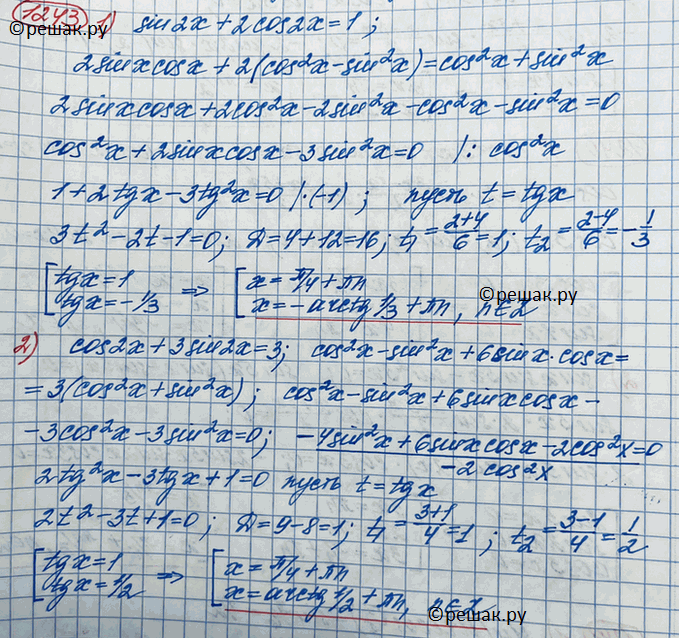 1243 1) sin2x + 2cos2x = 1 ;
©решак.ру
2sinxcosx + 2(cos²x - sin²x) = cos²x + sin²x
2sinxcosx + 2cos²x - 2sin²x - cos²x - sin²x = 0
cos²x + 2sinxcosx - 3sin²x = 0 /: cos²x
1 + 2tgx - 3tg²x = 0 /·(-1) ; пусть t = tgx
3t² - 2t - 1 = 0; D = 4 + 12 = 16; t₁ = (2+4)/6 = 1; t₂ = (2-4)/6 = -1/3
[tgx = 1 ⇒ [x = π/4 + πn
©решак.ру
tgx = -1/3 x = -arctg 1/3 + πn, n∈Z
2) cos2x + 3sin2x = 3; cos²x - sin²x + 6sinx·cosx =
= 3(cos²x + sin²x); cos²x - sin²x + 6sinxcosx -
- 3cos²x - 3sin²x = 0; (-4sin²x + 6sinxcosx - 2cos²x = 0)/(-2cos²x)
2tg²x - 3tgx + 1 = 0 пусть t = tgx
2t² - 3t + 1 = 0; D = 9 - 8 = 1; t₁ = (3+1)/4 = 1 ; t₂ = (3-1)/4 = 1/2
[tgx = 1 ⇒ [x = π/4 + πn
tgx = 1/2 x = arctg 1/2 + πn, n∈Z
©решак.ру